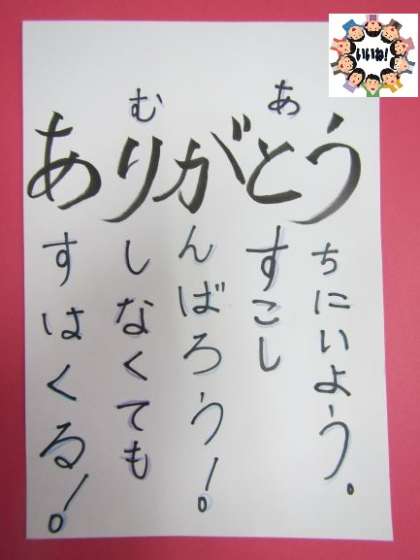 いいね!
む あ
ありがとう
ちにいよう。
すこし
んばろう!
しなくても
すはくる!